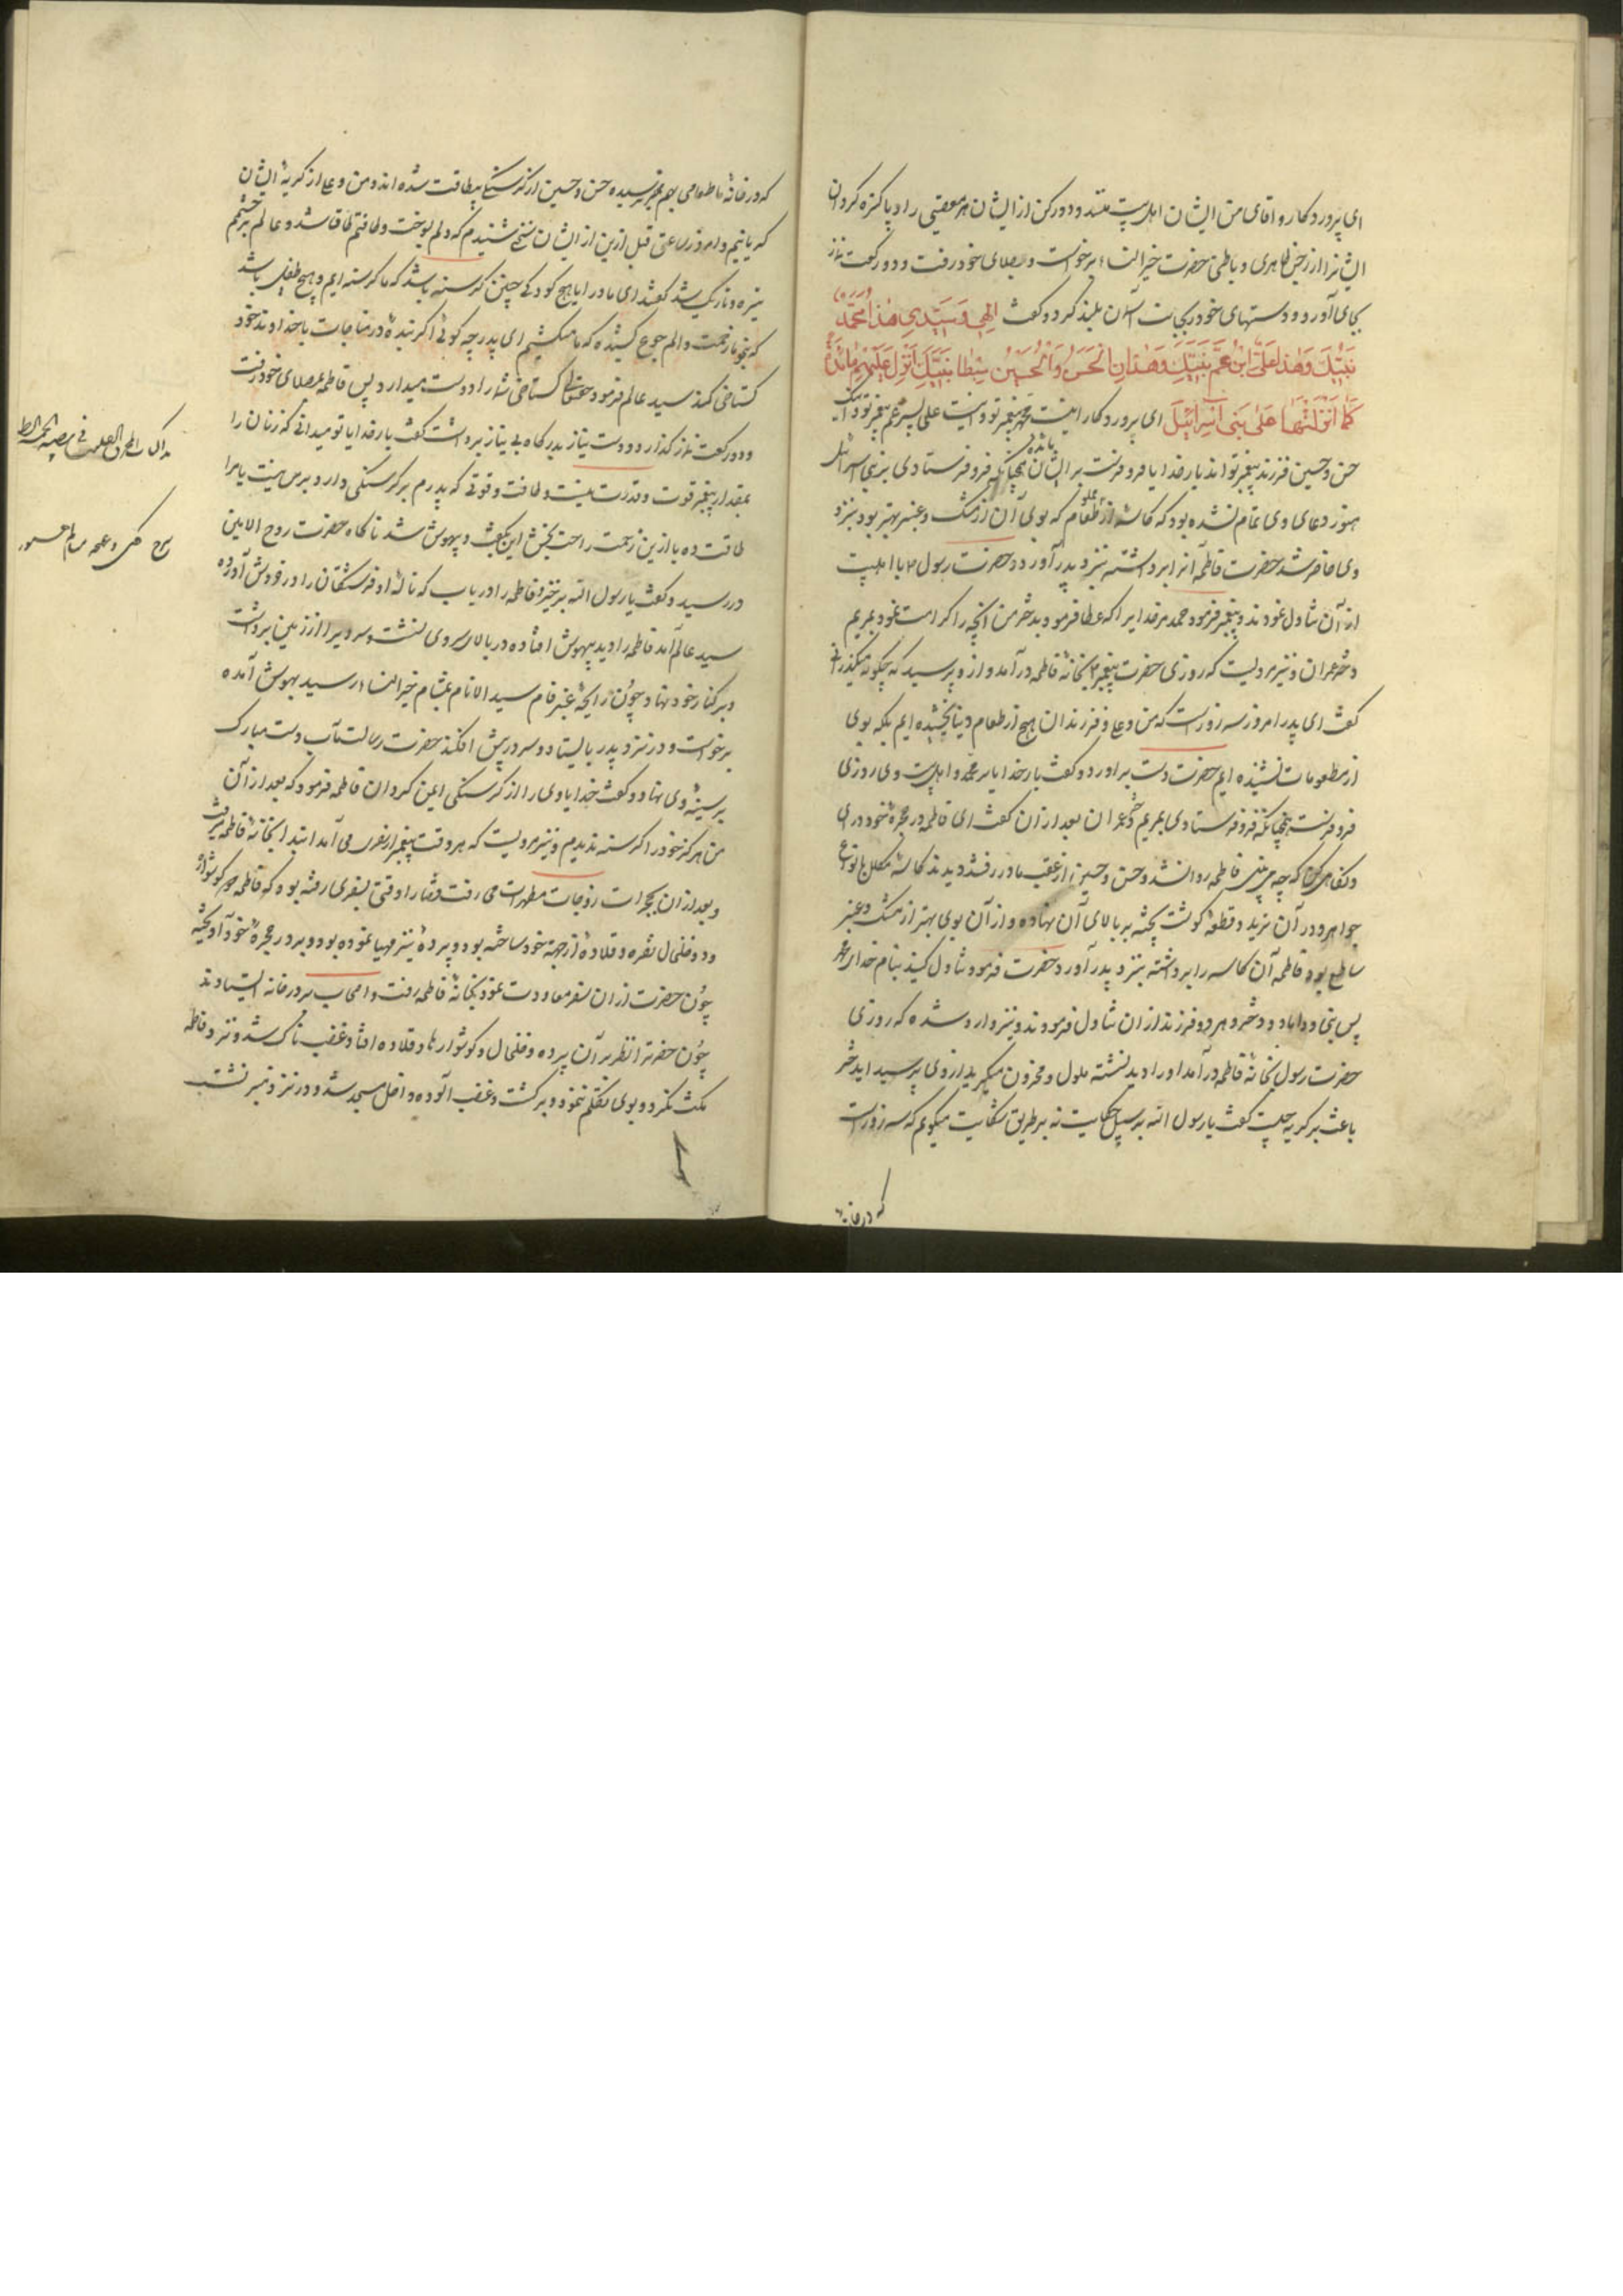 ای پروردکار و اقای من ایشان اهل بیت منند و دور کن از ایشان هر معصیتی را و پاکیزه کردان
ایشانرا از رجس ظاهری و باطنی حضرت خیر النساء برخواست و بمصلای خود رفت و دو رکعت نماز
بجای آورد و دستهای خود بجانب آسمان بلند کرد و کفت الهی و سیدی هذا محمد
نبیک و هذا علی ابن عم نبیک و هذان الحسن و الحسین سبطا نبیک انزل علیهم مائدة
کما انزلتها علی بنی اسرائیل ای پروردکار اینست محمد پیغمبر تو و اینست علی پسر عم پیغمبر تو و اینک
حسن و حسین فرزند پیغمبر تواند بار خدایا فرو فرست بر ایشان مائده همچنانکه فرو فرستادی بر بنی اسرائیل
هنوز دعای وی تمام نشده بود که کاسه مملو از طعام که بوی آن از مشک و عنبر بهتر بود نزد
وی حاضر شد حضرت فاطمه آنرا برداشته بنزد پدر آورد و حضرت رسول با اهلبیت
از آن تناول نمودند و پیغمبر فرمود حمد مر خدایرا که عطا فرمود بدختر من آنچه را کرامت نمود بمریم
دختر عمران و نیز مرویست که روزی حضرت پیغمبر بخانهٔ فاطمه در آمد و از و پرسید که چکونه میکذرانی
کفت ای پدر امروز سه روز است که من و علی و فرزندان هیچ از طعام دنیا نچشیده ایم بلکه بوی
از مطعومات نشنیده ایم حضرت دست براورد و کفت بار خدایا بر محمد و اهلبیت وی روزی
فرو فرست همچنانکه فرو فرستادی بمریم دختر عمران بعد از ان کفت ای فاطمه در حجرهٔ خود درای
و نکاه کن که چه می بینی فاطمه روانشد و حسن و حسین از عقب مادر رفتند دیدند کاسهٔ مکلل بانواع
جواهر و در آن ثرید و قطعهٔ کوشت پخته بر بالای آن نهاده و از آن بوی بهتر از مشک و عنبر
ساطع بود فاطمه آن کاسه را برداشته بنزد پدر آورد حضرت فرمود تناول کنید بنام خدای
پس نبی و داماد و دختر و هر دو فرزند از ان تناول فرمودند و نیز وارد شده که روزی
حضرت رسول بخانهٔ فاطمه در آمد او را دید نشسته ملول و محزون میکرید از وی پرسید ایدختر
باعث بر کریه چیست کفت یا رسول الله بر سبیل حکایت نه بر طریق شکایت میکویم که سه روز است
که در خانهٔ
که در خانهٔ ما طعامی بهم نرسیده حسن و حسین از کرسنکی بیطاقت شده اند و من و علی از کریهٔ ایشان
کریانیم و امروز ساعتی قبل ازین از ایشان سخنی شنیدم که دلم بسوخت و طاقتم طاق شد و عالم بر چشمم
تیره و تاریک شد کفتند ای مادر ایا هیچ کودکی چنین کرسنه باشد که ما کرسنه ایم و هیچ طفلی باشد
که بنحو ما زحمت و الم جوع کشیده که ما میکشیم ای پدر چه کوئی اکر بندهٔ در مناجات با خداوند خود
کستاخی کند سید عالم فرمود حقتعالی کستاخی شما را دوست میدارد پس فاطمه بمصلای خود رفت
و دو رکعت نماز کذارد و دست نیاز بدرکاه بی نیاز برداشت کفت بار خدایا تو میدانی که زنان را
بمقدار پیغمبر قوت و قدرت نیست و طاقت و قوتی که پدرم بر کرسنکی دارد بر من نیست یا مرا
طاقت ده یا ازین زحمت راحت بخش این بکفت و بیهوش شد ناکاه حضرت روح الامین
در رسید و کفت یا رسول الله برخیز و فاطمه را دریاب که نالهٔ او فرشتکان را در خروش آورده
سید عالم آمد فاطمه را دید بیهوش افتاده در بالای سر وی نشست و سر ویرا از زمین برداشت
و بر کنار خود نهاد و چون رایحهٔ عنبر فام سید الانام بمشام خیر النساء رسید بهوش آمده
برخواست و در نزد پدر بایستاد و سر در پیش افکند حضرت رسالتمآب دست مبارک
بر سینهٔ وی نهاد و کفت خدایا وی را از کرسنکی ایمن کردان فاطمه فرمود که بعد از آن
من هرکز خود را کرسنه ندیدم و نیز مرویست که هر وقت پیغمبر از سفری می آمد ابتدا بخانهٔ فاطمه میرفت
و بعد از ان بحجرات زوجات مطهرات می رفت قضا را وقتی بسفری رفته بود که فاطمه کوشواره
و دو خلخال نقره و قلادهٔ از جهت خود ساخته بود و پردهٔ نیز مهیا نموده بود و بر در حجرهٔ خود آویخته
چون حضرت از ان سفر معاودت نمود بخانهٔ فاطمه رفت و اصحاب بر در خانه ایستادند
چون حضرترا نظر بر آن پرده و خلخال و کوشوارها و قلاده افتاد غضبناک شد و نزد فاطمه
مکث نکرد و بوی تکلم ننمود و برکشت و غضب آلوده داخل مسجد شد و در نزد منبر نشست